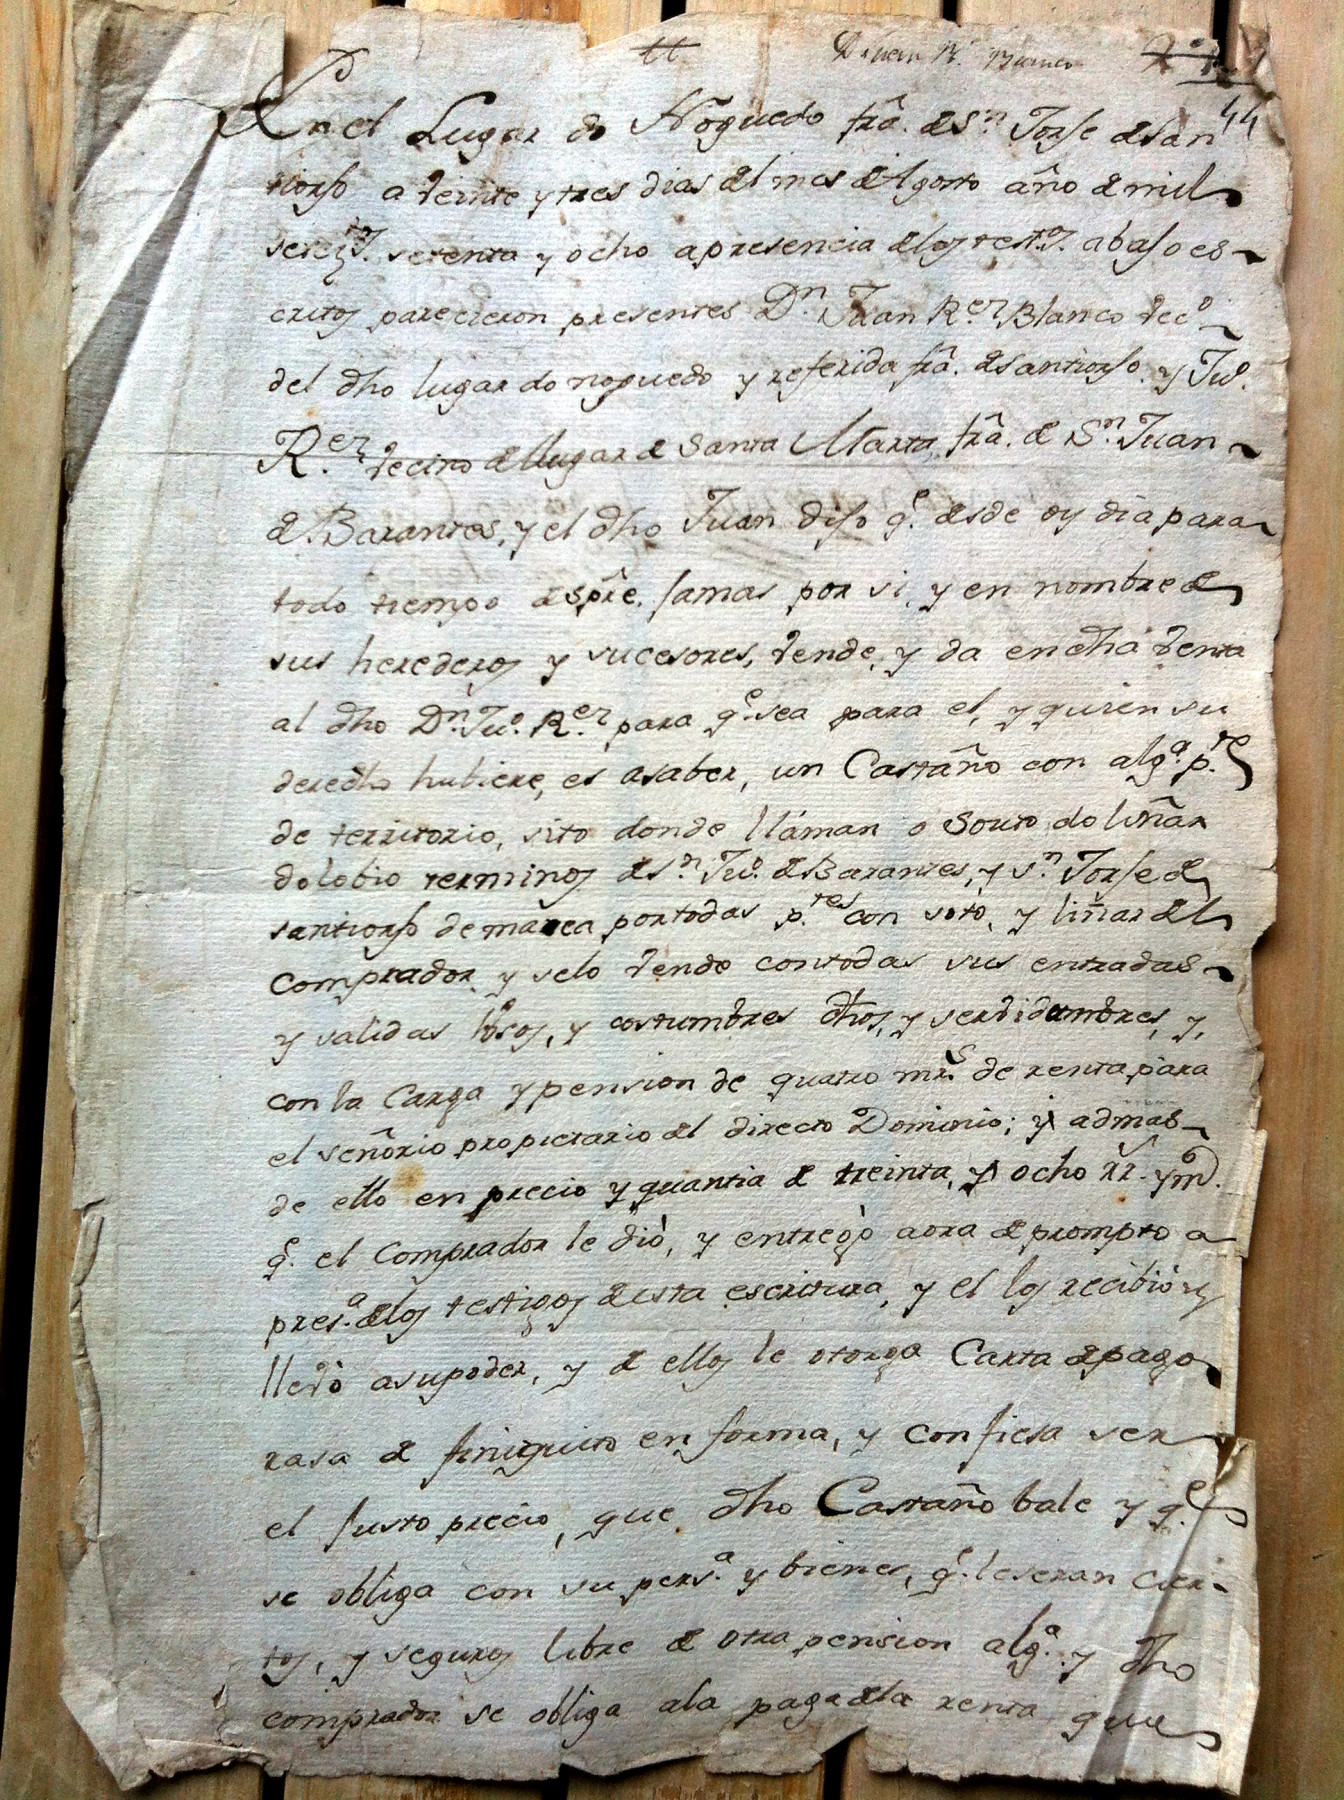 tt
44
En el Lugar do Nóguedo frã. de Sn. Jorje de san
tiorjo a veinte y tres dias del mes de Agosto año de mil
setezs. setenta y ocho a presencia de los testos. abajo es-
critos parecieron presentes Dn. Juan Rez. Blanco veco
del dho lugar do noguedo y referida frã. de santiorjo y Juo.
Rez. vecino del lugar de Santa Marta, frã. de Sn. Juan
de Barantes, y el dho Juan dijo qe. desde oy dia para
todo tiempo de spre. jamas por si, y en nombre de
sus herederos y sucesores, vende, y da en dha venta
al dho Dn. Juo. Rez. para qe. sea para el, y quien su
derecho hubiere, es a saber, un Castaño con alga. pte.
de territorio, sito donde llaman o Souto do liñar
do lobio terminos de Sn. Juo. de Barantes, y Sn. Jorje de
santiorjo demarca por todas ptes. con soto, y liñar del
comprador y se lo vende con todas sus entradas
y salidas usos, y costumbres dhos, y serbidumbres, y,
con la Carga y pension de quatro mrs. de renta para
el señorio propietario del directo Dominio; y admas
de ello en precio y quantia de treinta, y ocho rs. vn.
qe. el Comprador le dió, y entregó aora de prompto a
presa. de los testigos desta escritura, y el los recibió y
llevó a su poder, y de ellos le otorga Carta de pago
rasa de finiquito en forma, y confiesa ser
el justo precio, que dho Castaño bale y qe.
se obliga con su persa. y bienes, qe. le seran cier-
tos, y seguros libre de otra pension alga. y dho
comprador se obliga a la paga de la renta que